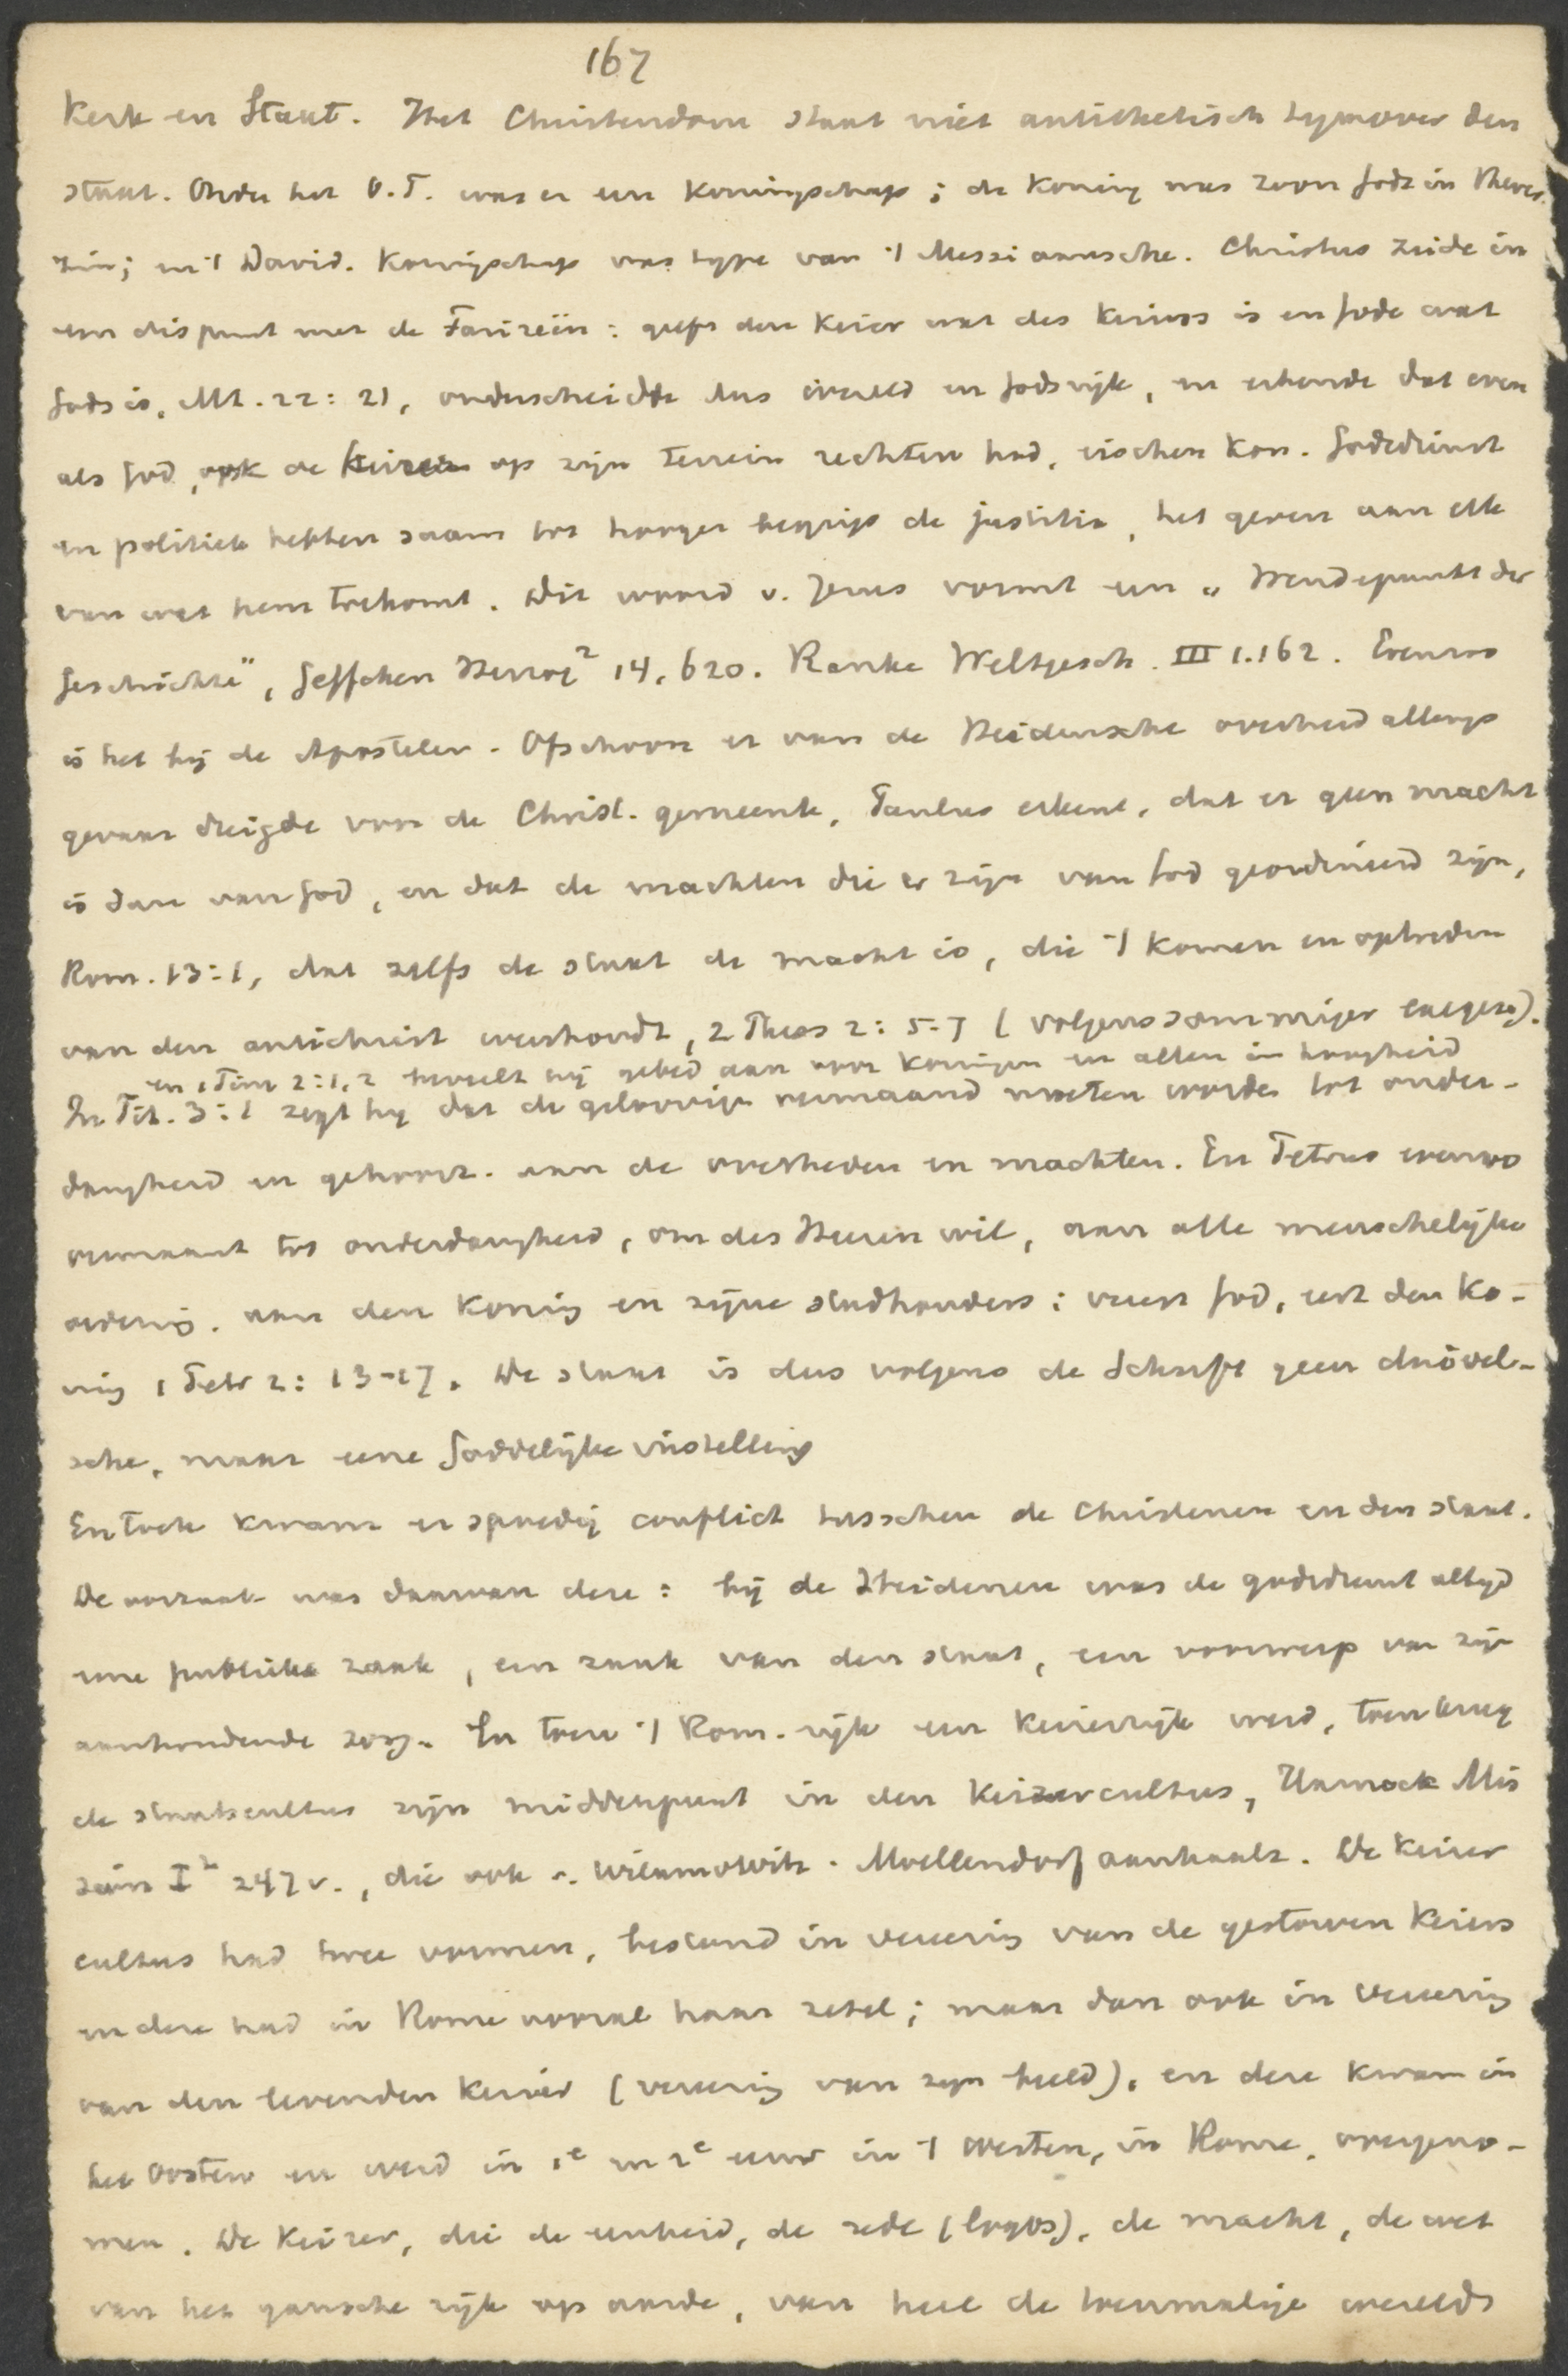 167
Kerk en Staat. Het Christendom staat niet antithetisch tegenover den
staat. Onder het O.T. was er een Koningschap; de Koning was zoon Gods in theocr.
zin; en 't David. Koningschap was type van 't Messiaansche. Christus zeide in
een dispuut met de Farizeën: geeft den Keizer wat des Keizers is en Gode wat
Gods is, Mt. 22: 21, onderscheidde dus wereld en Godsrijk, en erkende dat even
als God, ook de Keizer op zijn terrein rechten had, eischen kon. Godsdienst
en politiek hebben saam tot hooger begrip de justitia, het geven aan elk
van wat hem toekomt. Dit woord v. Jezus vormt een „Wendepunkt der
Geschichte", Geffcken Herzog² 14, 620. Ranke Weltgesch. III 1.162. Evenzoo
is het bij de Apostelen. Ofschoon er van de Heidensche overheid allengs
gevaar dreigde voor de Christ. gemeente, Paulus erkent, dat er geen macht
is dan van God, en dat de machten die er zijn van God geordineerd zijn,
Rom. 13:1, dat zelfs de staat de macht is, die 't komen en optreden
van den antichrist weerhoudt, 2 Thess 2: 5-7 (volgens sommiger exegese).
en 1 Tim 2:1,2 beveelt hij gebed aan voor koningen en allen in hoogheid
In Tit. 3:1 zegt hij dat de geloovigen vermaand moeten worden tot onder-
danigheid en gehoorz. aan de overheden en machten. En Petrus evenzoo
vermaant tot onderdanigheid, om des Heeren wil, aan alle menschelijke
ordening. aan den Koning en zijne stadhouders: vreest God, eert den Ko-
ning 1 Petr 2: 13-17. De staat is dus volgens de Schrift geen duivel-
sche, maar eene Goddelijke instelling
En toch kwam er spoedig conflict tusschen de Christenen en den staat.
De oorzaak was daarvan deze: bij de Heidenen was de godsdienst altijd
eene publieke zaak, een zaak van den staat, een voorwerp van zijn
aanhoudende zorg. En toen 't Rom. rijk een Keizerrijk werd, toen kreeg
de staatscultus zijn middenpunt in den Keizercultus, Harnack Mis
sion I² 247 v., die ook v. Wilamowitz-Moellendorf aanhaalt. De Keizer
cultus had twee vormen, bestond in vereering van de gestorven Keizers
en deze had in Rome vooral haar zetel; maar dan ook in vereering
van den levenden Keizer (vereering van zijn beeld), en deze kwam in
het Oosten en werd in 1e en 2e eeuw in 't Westen, in Rome, overgeno-
men. De Keizer, die de eenheid, de rede (logos), de macht, de wet
van het gansche rijk op aarde, van heel de toenmalige wereld